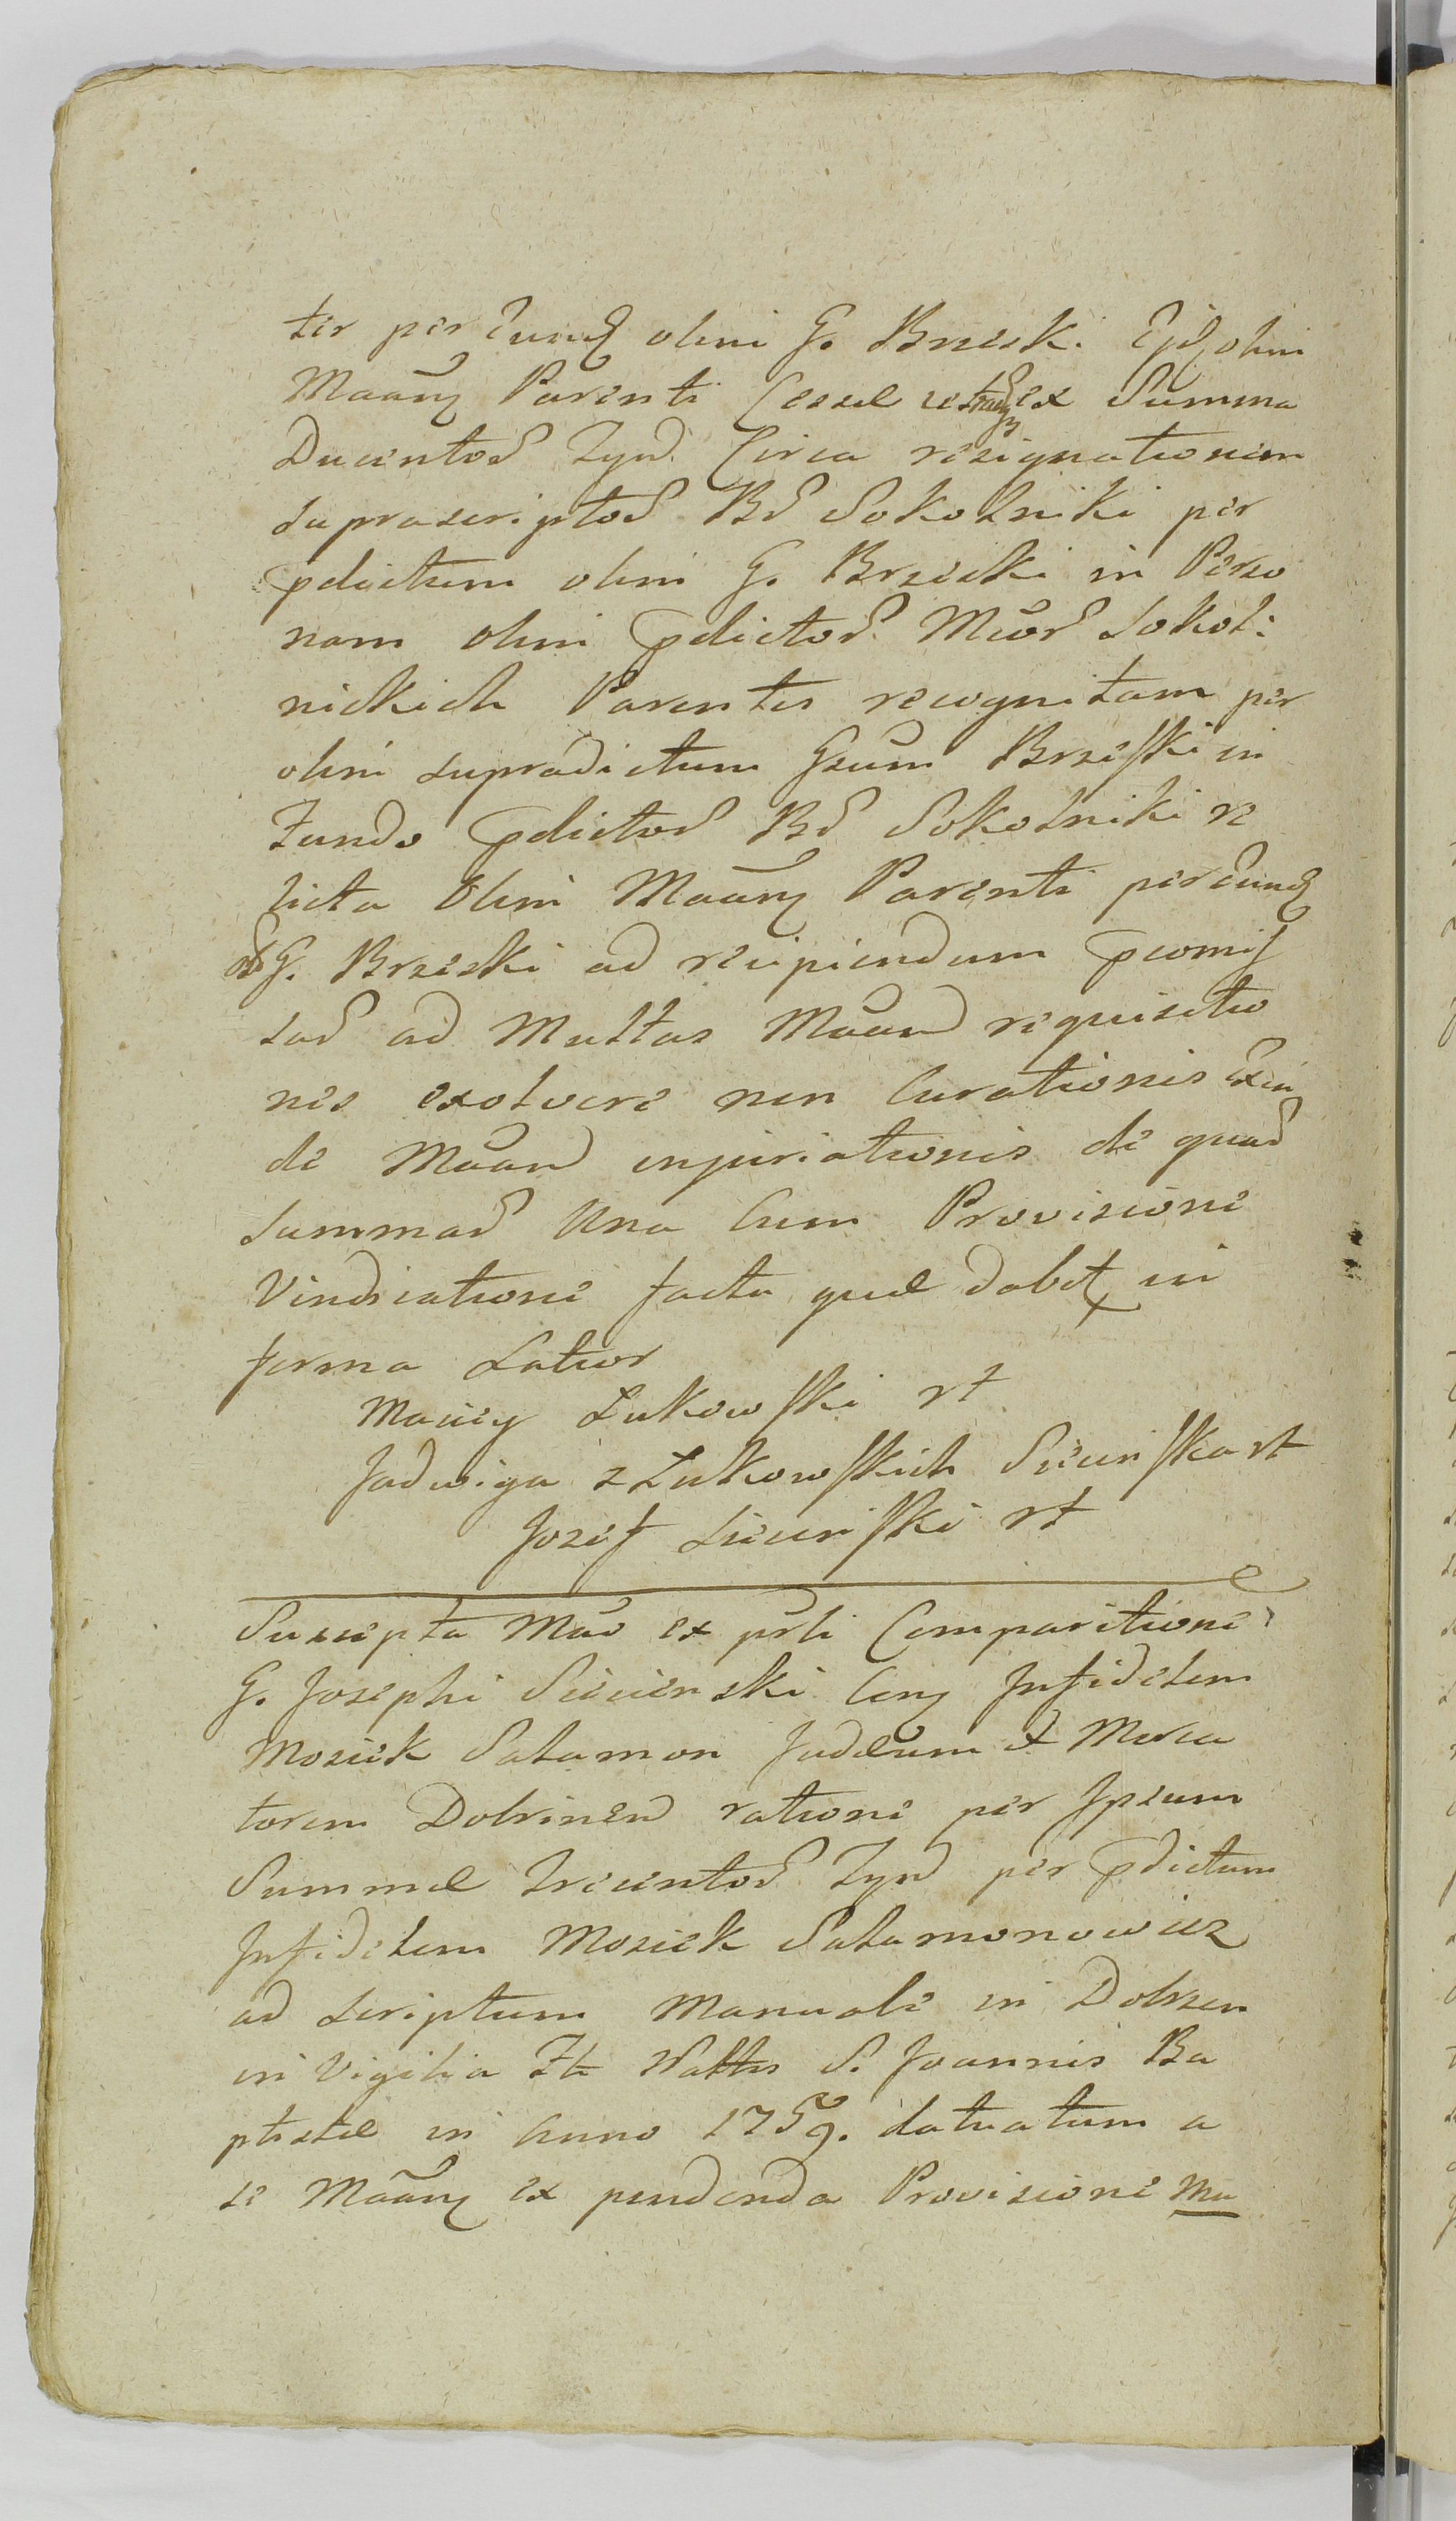 ter per eund olim G. Brzeski Ejd olim
Maanq Parenti Cessae et ex Summa
Ducentor Tynf. Circa resignationem
suprascriptor Br Sokolniki per
pdictum olim G. Brzeski in Perso
nam olim pdictor Mcor Sokol:
nickich Parentis recognitam per
olim supradictum Gsum Brzeski in
Fundo pdictor Br Sokolniki re
licta Olim Maanq Parenti per eund
G. Brzeski ad recipiendum promis
sar ad Multas Maan requisitio
nes exolvere non Curationis Exin
de Maan injuriationis de quar
summar Una Cum Provisione
Vindicatione facta quae dabit in
forma Latior
Maciey Łukowski rt
Jadwiga z Łukowskich Siecinska rt
Jozef Siecinski rt
Suscepta Mao ex prli Comparitione
G. Josephi Siecienski Cong Infidelem
Mosiek Salamon Judaeum et Merca
torem Dobrinen ratione per Ipsum
Summae Trecentor Tynf per pdictum
Infidelem Mosiek Salamonowicz
ad scriptum Manuale in Dobrzen
in Vigilia Ftt Nattis S. Joannis Ba
ptistae in Anno 1759. datuatum a
se Maanq ex pendenda Provisione Mu